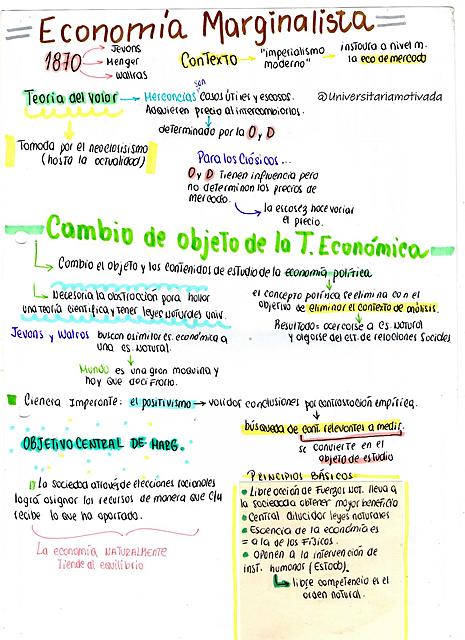 Economía Marginalista
1870
Jevons
Menger
Wallras
Contexto → "imperialismo
moderno" →
instaura a nivel m.
la eco de mercado
Teoría del Valor → Mercancías son cosas útiles y escasas.
Adquieren precio al intercambiarlos.
@Universitariamotivada
determinado por la O y D
Tomada por el neoclasismo
(hasta la actualidad)
Para los Clásicos...
O y D Tienen influencia pero
no determinan los precios de
mercado.
la escasez hace variar
el precio.
Cambio de objeto de la T. Económica
Cambia el objeto y los contenidos de estudio de la economía política
Necesaria la abstracción para
una teoría científica y tener leyes naturales univ.
el concepto política se elimina con el
objetivo de eliminar el contexto de análisis.
Resultado = acercarse a Cs. Natural
y alejarse del est. de relaciones sociales
Jevons y Walras buscan asimilar es. económica a
una cs. NATURAL.
Mundo es una gran maquina y
hay que descifrarlo.
Ciencia Imperante: el positivismo → validar conclusiones por contrastación empírica.
búsqueda de cant. relevantes a medir.
se convierte en el
objeto de estudio
OBJETIVO CENTRAL DE MARG.
La sociedad através de elecciones racionales
logra asignar los recursos de manera que c/u
recibe lo que ha aportado.
La economía NATURALMENTE
Tiende al equilibrio
PRINCIPIOS BÁSICOS
Libre acción de Fuerzas Nat. lleva a
la sociedad a obtener mayor beneficio
Central dilucidar leyes naturales
Escencia de la economía es
= a la de los Físicos.
Oponen a la intervención de
inst. humanas (Estado).
libre competencia es el
orden natural.